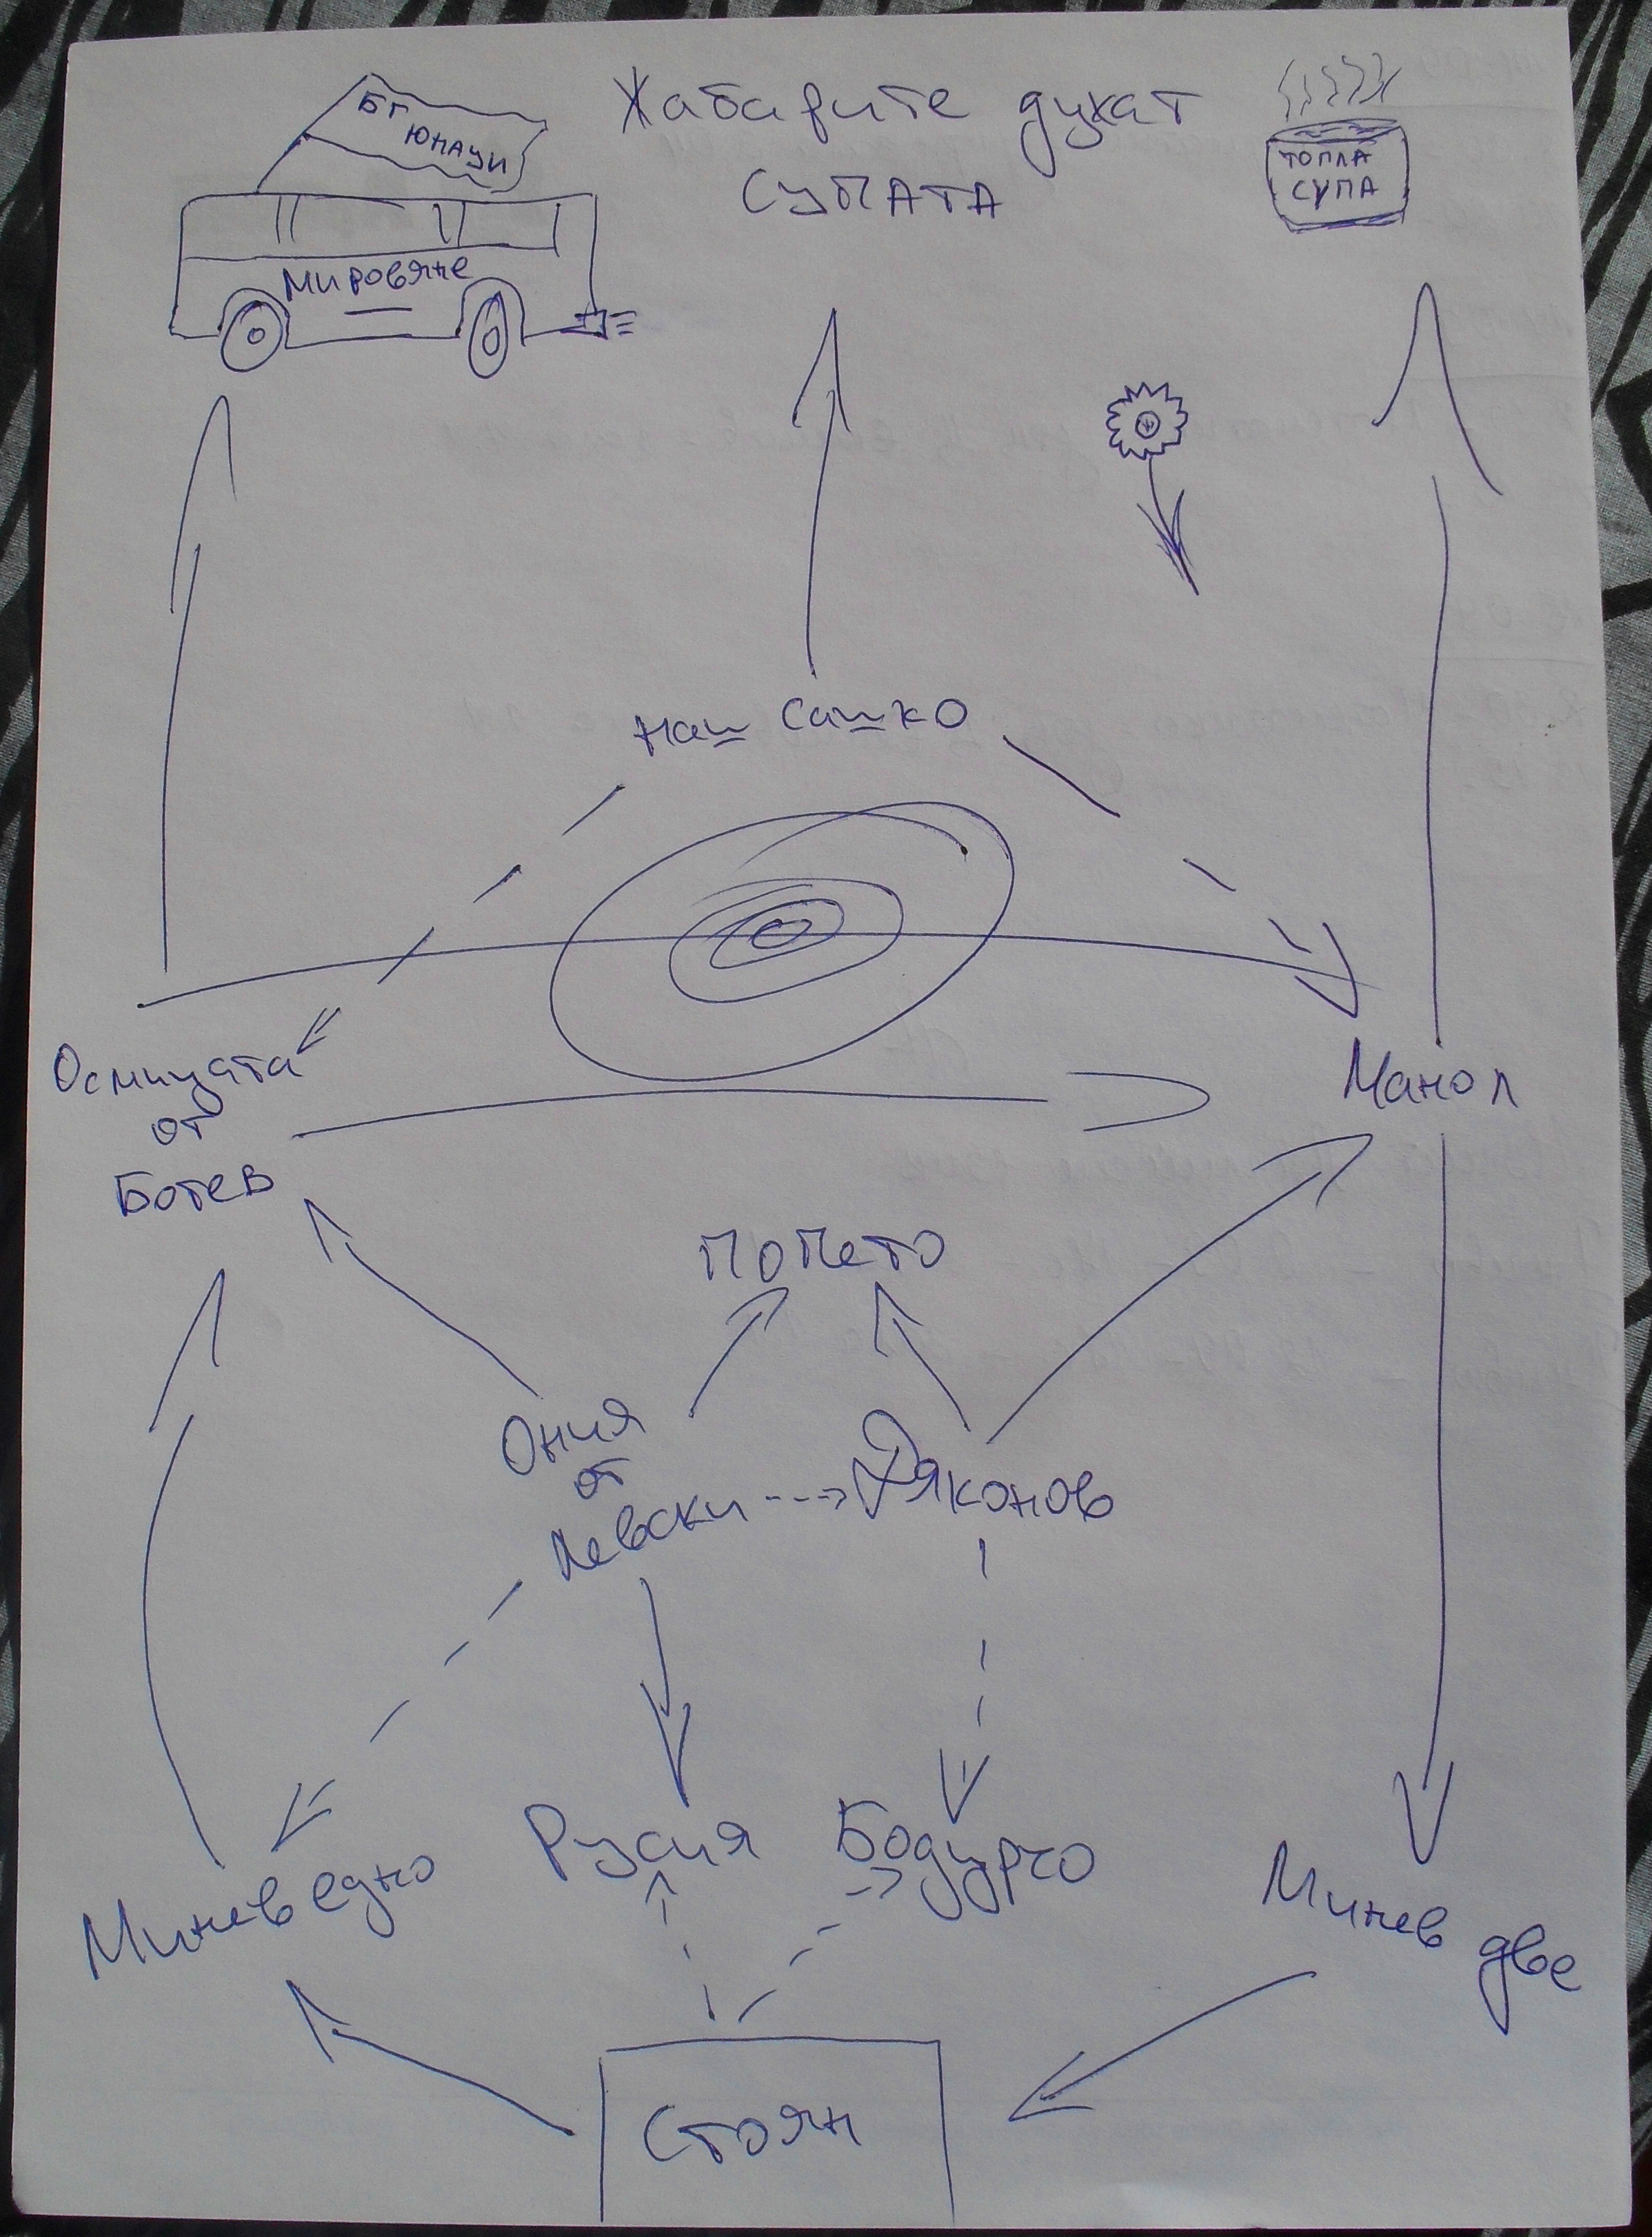 БГ
ЮНАЦИ
Жабарите духат
СУПАТА
ТОПЛА
СУПА
Мировяне
наш Сашко
Осмицата
от
Ботев
Манол
Попето
Ония
от
Левски
Дяконов
Русия
Бодурго
Минев едно
Минев две
Стоян